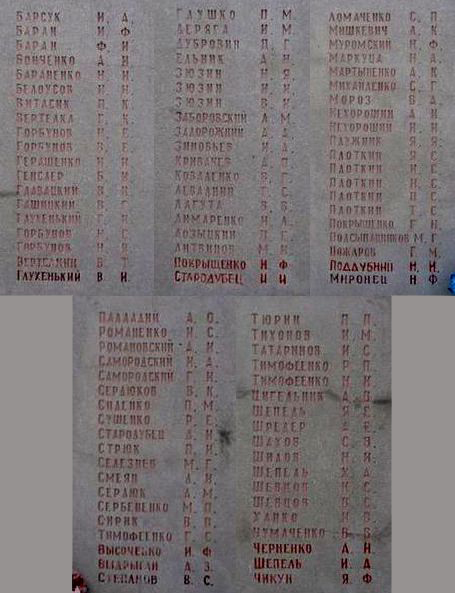 БАРСУК И. А.
БАРАН И Ф
БАРАН Ф И
БОНЧЕНКО А. И
БАРАНЕНКО И. И.
БЕЛОУСОВ И И.
ВИТАСИК П. К.
ВЕРТЕЛКА Г. К.
ГОРБУНОВ И С.
ГОРБУНОВ В Е.
ГЕРАЩЕНКО И. И.
ГЕНСЛЕР Б. И
ГЛАВАЦКИЙ В. И
ГАШИЦКИЙ В. Г
ГЛУХЕНЬКИЙ Г. И
ГОРБУНОВ И С.
ГОРБУНОВ И И.
ВЕРТЕЛКИЙ В. Т.
ГЛУХЕНЬКИЙ В. И.
ГЛУШКО П. М.
ДЕРЯГА И М.
ДУБРОВИН П. Г
ЕЛЬНИК А И.
ЗЮЗИН И Я.
ЗЮЗИН И И.
ЗЮЗИН В. И
ЗАБОРОВСКИЙ А. М
ЗАДОРОЖНИЙ Д
ЗИНОВЬЕВ И А.
КРИВАЧЕВ Д П.
КОВАЛЕНКО В. Г
ЛЕВАДНИЙ Г. С
ЛАГУТА В.
ЛИМАРЕНКО И А.
ЛОЗЫЦКИЙ П Е.
ЛИТВИНОВ М.
ПОКРЫЩЕНКО И Ф
СТАРОДУБЕЦ И И
ЛОМАЧЕНКО С. П.
МИШКЕВИЧ А. К
МУРОМСКИЙ И Ф.
МАРКУЦА И А
МАРТЫНЕНКО А. К
МИХАЙЛЕНКО С. Г
МОРОЗ В А.
НЕХОРОШИЙ А И
НЕХОРОШИЙ И И
ПЛУЖНИК Я. Я.
ПЛОТКИН Я С.
ПЛОТКИН И С
ПЛОТКИН И С.
ПЛОТКИН П С
ПЛОТКИН Т С
ПОКРЫЩЕНКО Г И
ПОДСЫПАННИКОВ М. Г
ПОЖАРОВ Г. М
ПОДДУБНИЙ И. И.
МИРОНЕЦ И Ф
ПАЛЛАДИЙ А. О.
РОМАНЕНКО И С.
РОМАНОВСКИЙ А. И.
САМОРОДСКИЙ И А.
САМОРОДСКИЙ Г. И
СЕРДЮКОВ В. К
СИДЕНКО П. М.
СУШЕНКО Р. Е.
СТАРОДУБЕЦ Д И
СТРЮК П. И
СЕЛЕЗНЕВ М. Г
СМЕЯН А. И
СЕРДЮК А. М.
СЕРБЕНЕНКО М. П.
СИРИК В. П.
ТИМОФЕЕНКО Г С.
ВЫСОЧЕНКО И Ф
ВЫДРЫГАН А. З.
СТЕПАНОВ В. С.
ТЮРИН П П.
ТИХОНОВ И. М.
ТАТАРИНОВ И С
ТИМОФЕЕНКО Р П
ТИМОФЕЕНКО И И.
ЦИГЕЛЬНИК А В.
ШЕПЕЛЬ Я Е
ШРЕДЕР А Е.
ШАХОВ С В.
ШИЛОВ И И.
ШЕПЕЛЬ Х А
ШЕВЦОВ И С
ШЕВЦОВ В С
ЧАЙКО И В
ЧУМАЧЕНКО В В
ЧЕРНЕНКО А И
ШЕПЕЛЬ И А
ЧИКУН Я Ф